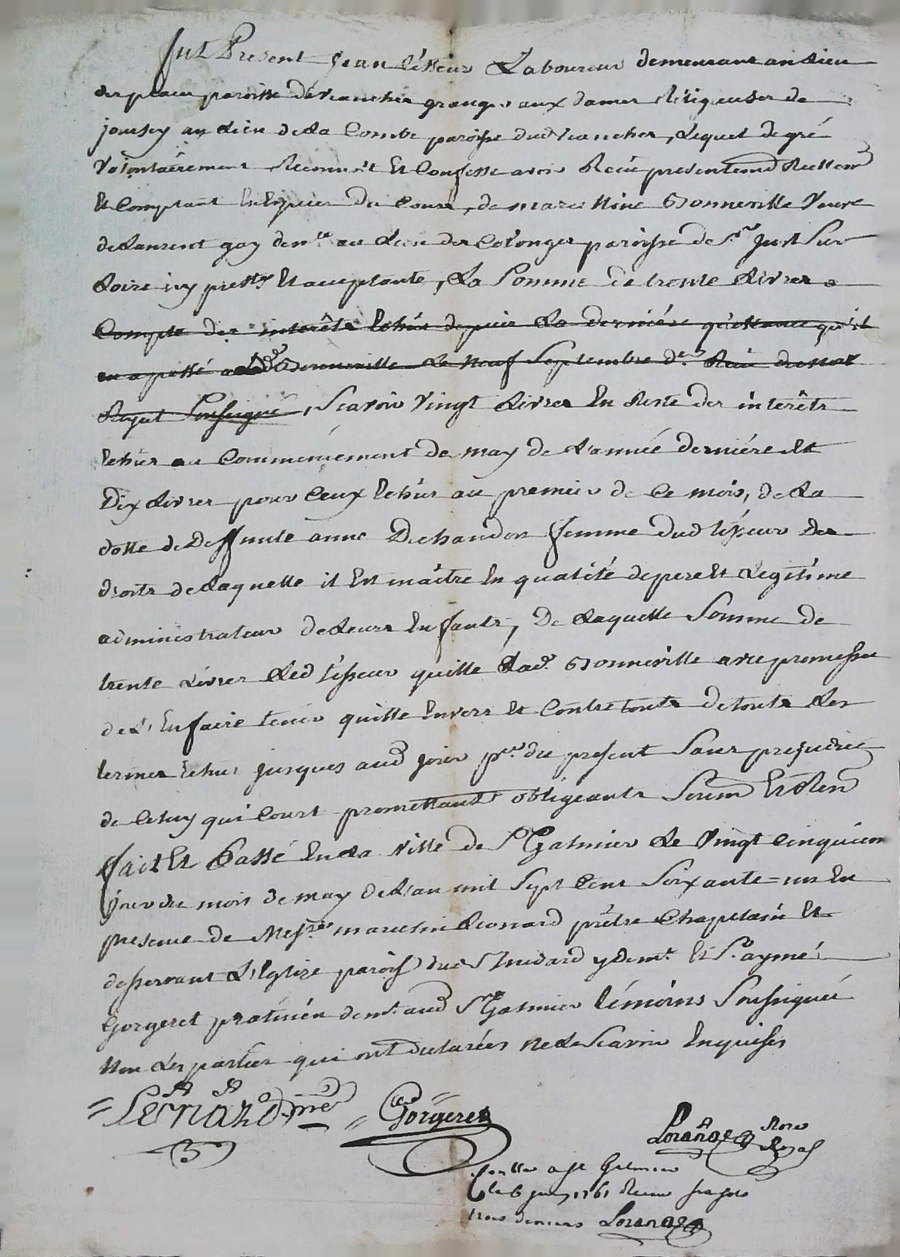 fut Present Jean téxeur Laboureur demeurant au Lieu
des plain paroisse de veaucher granger aux dames Religieuses de
joursey au Lieu de La Combe paroisse dud veaucher, Lequel de gré
Volontairement Reconnoit Et Confesse avoir Reçu présentemd Reellem
Et Comptant En Espèces du Cours, de marcelline Bonneville Veuve
de Laurent gay dem.te au Lieu des Colonges paroisse de S.t Just Sur
Loire icy pres.te Et acceptante, La Somme de trente Livres a
Compte des interêts Echûs depuis La dernière quittance qu'il
en a passé a Lad Bonneville Le neuf Septembre d.er Reçu du not
Royal Soussigné, Scavoir Vingt Livres En Reste des interêts
Echus au Commencement de may de L'année dernière Et
Dix Livres pour Ceux Echûs au premier de Ce mois, de La
dotte de Deffunte anne Dechandon femme dud téxeur des
droits de Laquelle il Est maître En qualité de pere Et Légitime
administrateur de Leurs Enfants, De Laquelle Somme de
trente Livres Led téxeur quitte Lad. Bonneville avec promesse
de L'En faire tenir quitte Envers Et Contre touts de touts Les
termes Echus jusques aud jour p.er du présent Sans préjudice
de Celuy qui Court promettants obligeants Soum Et Ren
fait Et Passé En La Ville de S.t Galmier Le Vingt Cinquiem
jour du mois de may de L'an mil Sept Cent Soixante-un En
présence de Mes.re marcelin Leonard prêtre Chapelain Et
desservant L'Eglize paroiss dud S.t medard y dem.t Et S.r aymé
Gorgeret praticien dem.t aud S.t Galmier témoins Soussignés
Non Les parties qui ont déclarées ne Le Scavoir Enquises
Leonard p.re Gorgeret
Lorange No.re Royal
Conllé a St Galmier
le 6 juin 1761 Reçu six sols
trois deniers Lorange